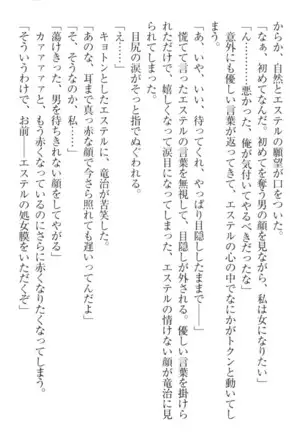 からか、自然とエステルの願望が口をついた。
「なぁ、初めてなんだ。初めてを奪う男の顔を見ながら、私は女になりたい」
「ん。――悪かったな、俺が気付いてやるべきだったな」
意外にも優しい言葉が返ってきて、エステルの心の中でなにかがトクンと動いてし
まう。
「あ、いや、いい、待ってくれ、やっぱり目隠ししたままで――」
慌てて言ったエステルの言葉を無視して、目隠しが外される。優しい言葉を掛けら
れただけで、嬉しくなって涙目になってしまった、エステルの情けない顔が竜治に見
られてしまった。
目尻の涙がそっと指でぬぐわれる。
「え……」
キョトンとしたエステルに、竜治が苦笑した。
「あのな、耳まで真っ赤な顔で今さら照れても遅いってんだよ」
「そ、そうなのか、私……」
「蕩けきった、男を待ちきれない顔をしてやがる」
カァァァァと、もう赤くなっているのにさらに赤くなりたくなってしまう。
「そういうわけで、お前――エステルの処女膜をいただくぞ」